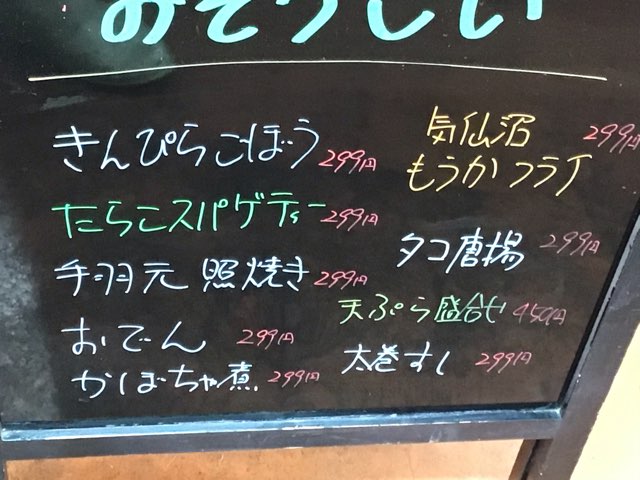 おそうざい
きんぴらごぼう 299円
たらこスパゲティー 299円
手羽元 照焼き 299円
おでん 299円
かぼちゃ煮 299円
気仙沼 299円
もうかフライ
タコ唐揚 299円
天ぷら盛合せ 450円
太巻すし 299円